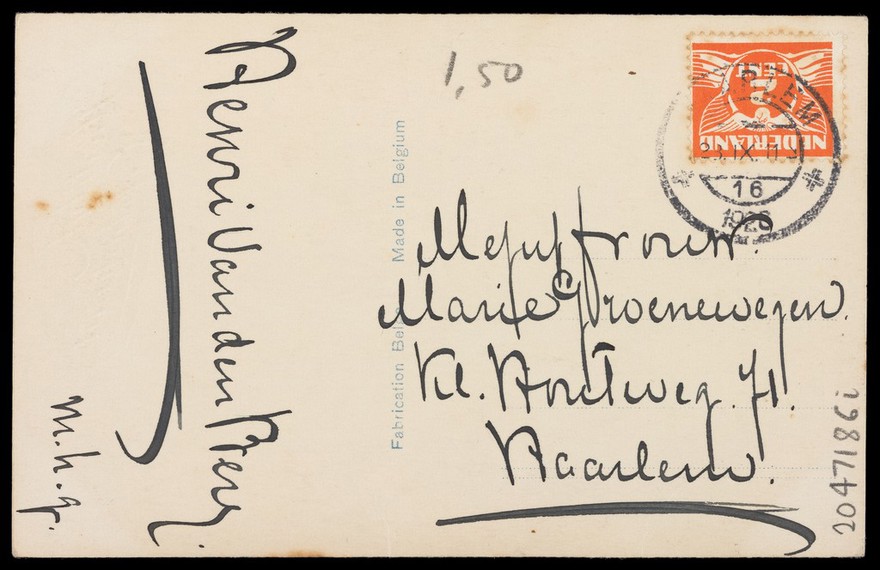 Henri Van den Berg.
m.h.g.
1,50
Fabrication Belge Made in Belgium
NEDERLAND
2
CENT
16
1926
Mejuffrouw.
Marie Groenewegen.
Kl. Houtweg 71.
Haarlem.
2047186i